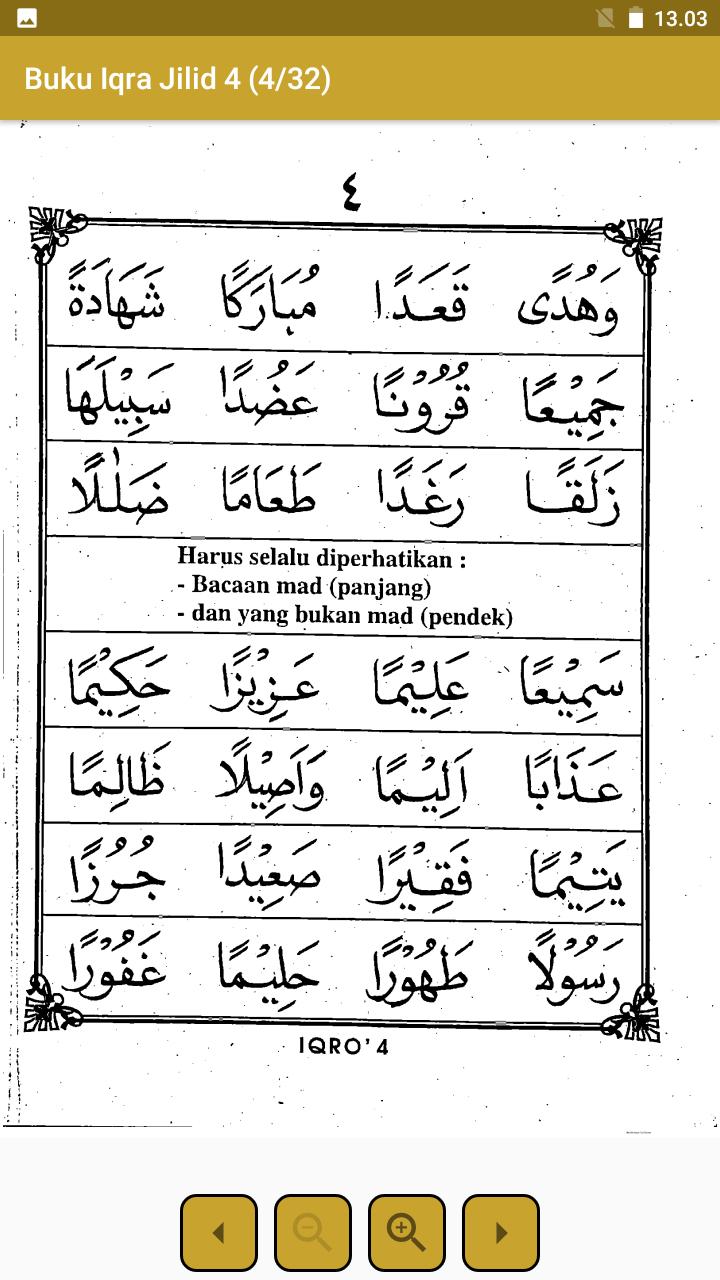 13.03
Buku Iqra Jilid 4 (4/32)
٤
وَهُدًى قَعَدًا مُبَارَكًا شَهَادَةً
جَمِيْعًا قُرُوْنًا عَضُدًا سَبِيْلَهَا
زَلَقًا رَغَدًا طَعَامًا ضَلٰلًا
Harus selalu diperhatikan :
- Bacaan mad (panjang)
- dan yang bukan mad (pendek)
سَمِيْعًا عَلِيْمًا عَزِيْزًا حَكِيْمًا
عَذَابًا اَلِيْمًا وَاَصِيْلًا ظَالِمًا
يَتِيْمًا فَقِيْرًا صَعِيْدًا جُرُزًا
رَسُوْلًا طَهُوْرًا حَلِيْمًا غَفُوْرًا
IQRO' 4